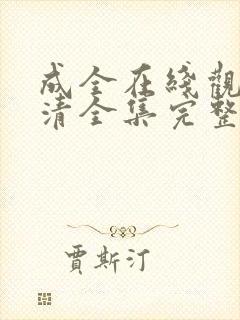 成全在綫觀
清全集完整
賈斯汀